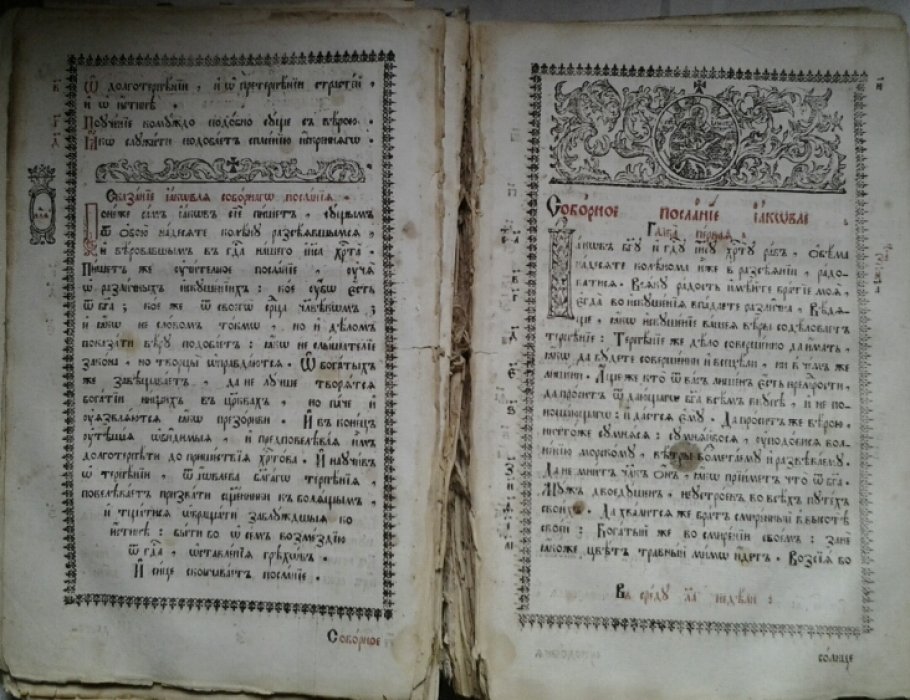 Ѿ долготерпѣнїи , и ѡ претерпѣнїи страстей ,
и ѡ истинѣ .
Поученїе комуждо подобно суще съ вѣрою .
Іакѡ служити подобаетъ спасенїю ближнягѡ .
Сказанїе іакѡвля соборнагѡ посланїѧ .
Понеже самъ іакѡвъ сїе пишетъ , сущымъ
ѿ обою надесяте колѣну разсѣявшымся ,
и вѣровавшымъ въ гд҃а нашего іи҃са хрⷭ҇та .
Пишетъ же учителное посланїе , учя
ѡ различныхъ искушенїихъ : кое убѡ есть
ѿ бг҃а ; кое же ѿ своегѡ срⷣца человѣкѡмъ ;
и іакѡ не словомъ токмѡ , но и дѣломъ
показати вѣру подобаетъ : іакѡ не слышателїе
закона , но творцы ѡправдаются . Ѿ богатыхъ
же завѣщаваетъ , да не лучше творятся
богатїи нищихъ въ црⷦ҇вахъ , но паче и
уязвляются іакѡ презориви . И въ конецъ
утѣшя ѡбидимыя , и предповелѣвая имъ
долготерпѣти до пришествїя хрⷭ҇това . И научивъ
ѡ терпѣнїи , ѿ іѡвлева благагѡ терпѣнїя ,
повелѣваетъ призвати сщ҃енники къ болящымъ ,
и тщатися ѡбращати заблуждшыя во
истинѣ : быти бо ѡ семъ возмездїю
ѿ гд҃а , ѡставленїя грѣхѡвъ .
И сице скончаваетъ посланїе .
Соборное
Соборное посланїе іакѡвле
Глава первая .
Іакѡвъ бг҃у и гд҃у іи҃су хрⷭ҇ту рабъ , обѣма
надесяте колѣнома иже въ разсѣянїи , радо-
ватися . Всяку радость имѣйте братїе моя ,
егда во искушенїя впадаете различна , Вѣдя-
ще , іакѡ искушенїе вашея вѣры содѣловаетъ
терпѣнїе : Терпѣнїе же дѣло совершенно да имать ,
іакѡ да будете совершенни и всецѣли , ни въ чемъ же
лишени . Аще же кто ѿ васъ лишенъ есть премрости ,
да проситъ ѿ дающагѡ бг҃а всѣмъ вкупѣ , и не по-
ношающагѡ : и дастся ему . Да проситъ же вѣрою ,
ничтоже сумняся : сумняйбося , уподобися вол-
ненїю морскому , вѣтры возметаему и развѣваему .
Да не мнитъ чл҃къ онъ , іакѡ прїиметъ что ѿ бг҃а .
Мужъ двоедушенъ , неустроенъ во всѣхъ путехъ
своихъ . Да хвалится же братъ смиренный въ высотѣ
своей : Богатый же во смиренїи своемъ : зане
іакоже цвѣтъ травный мимѡ идетъ . Возсїя бо
Въ среду л҃а недѣли :
солнце